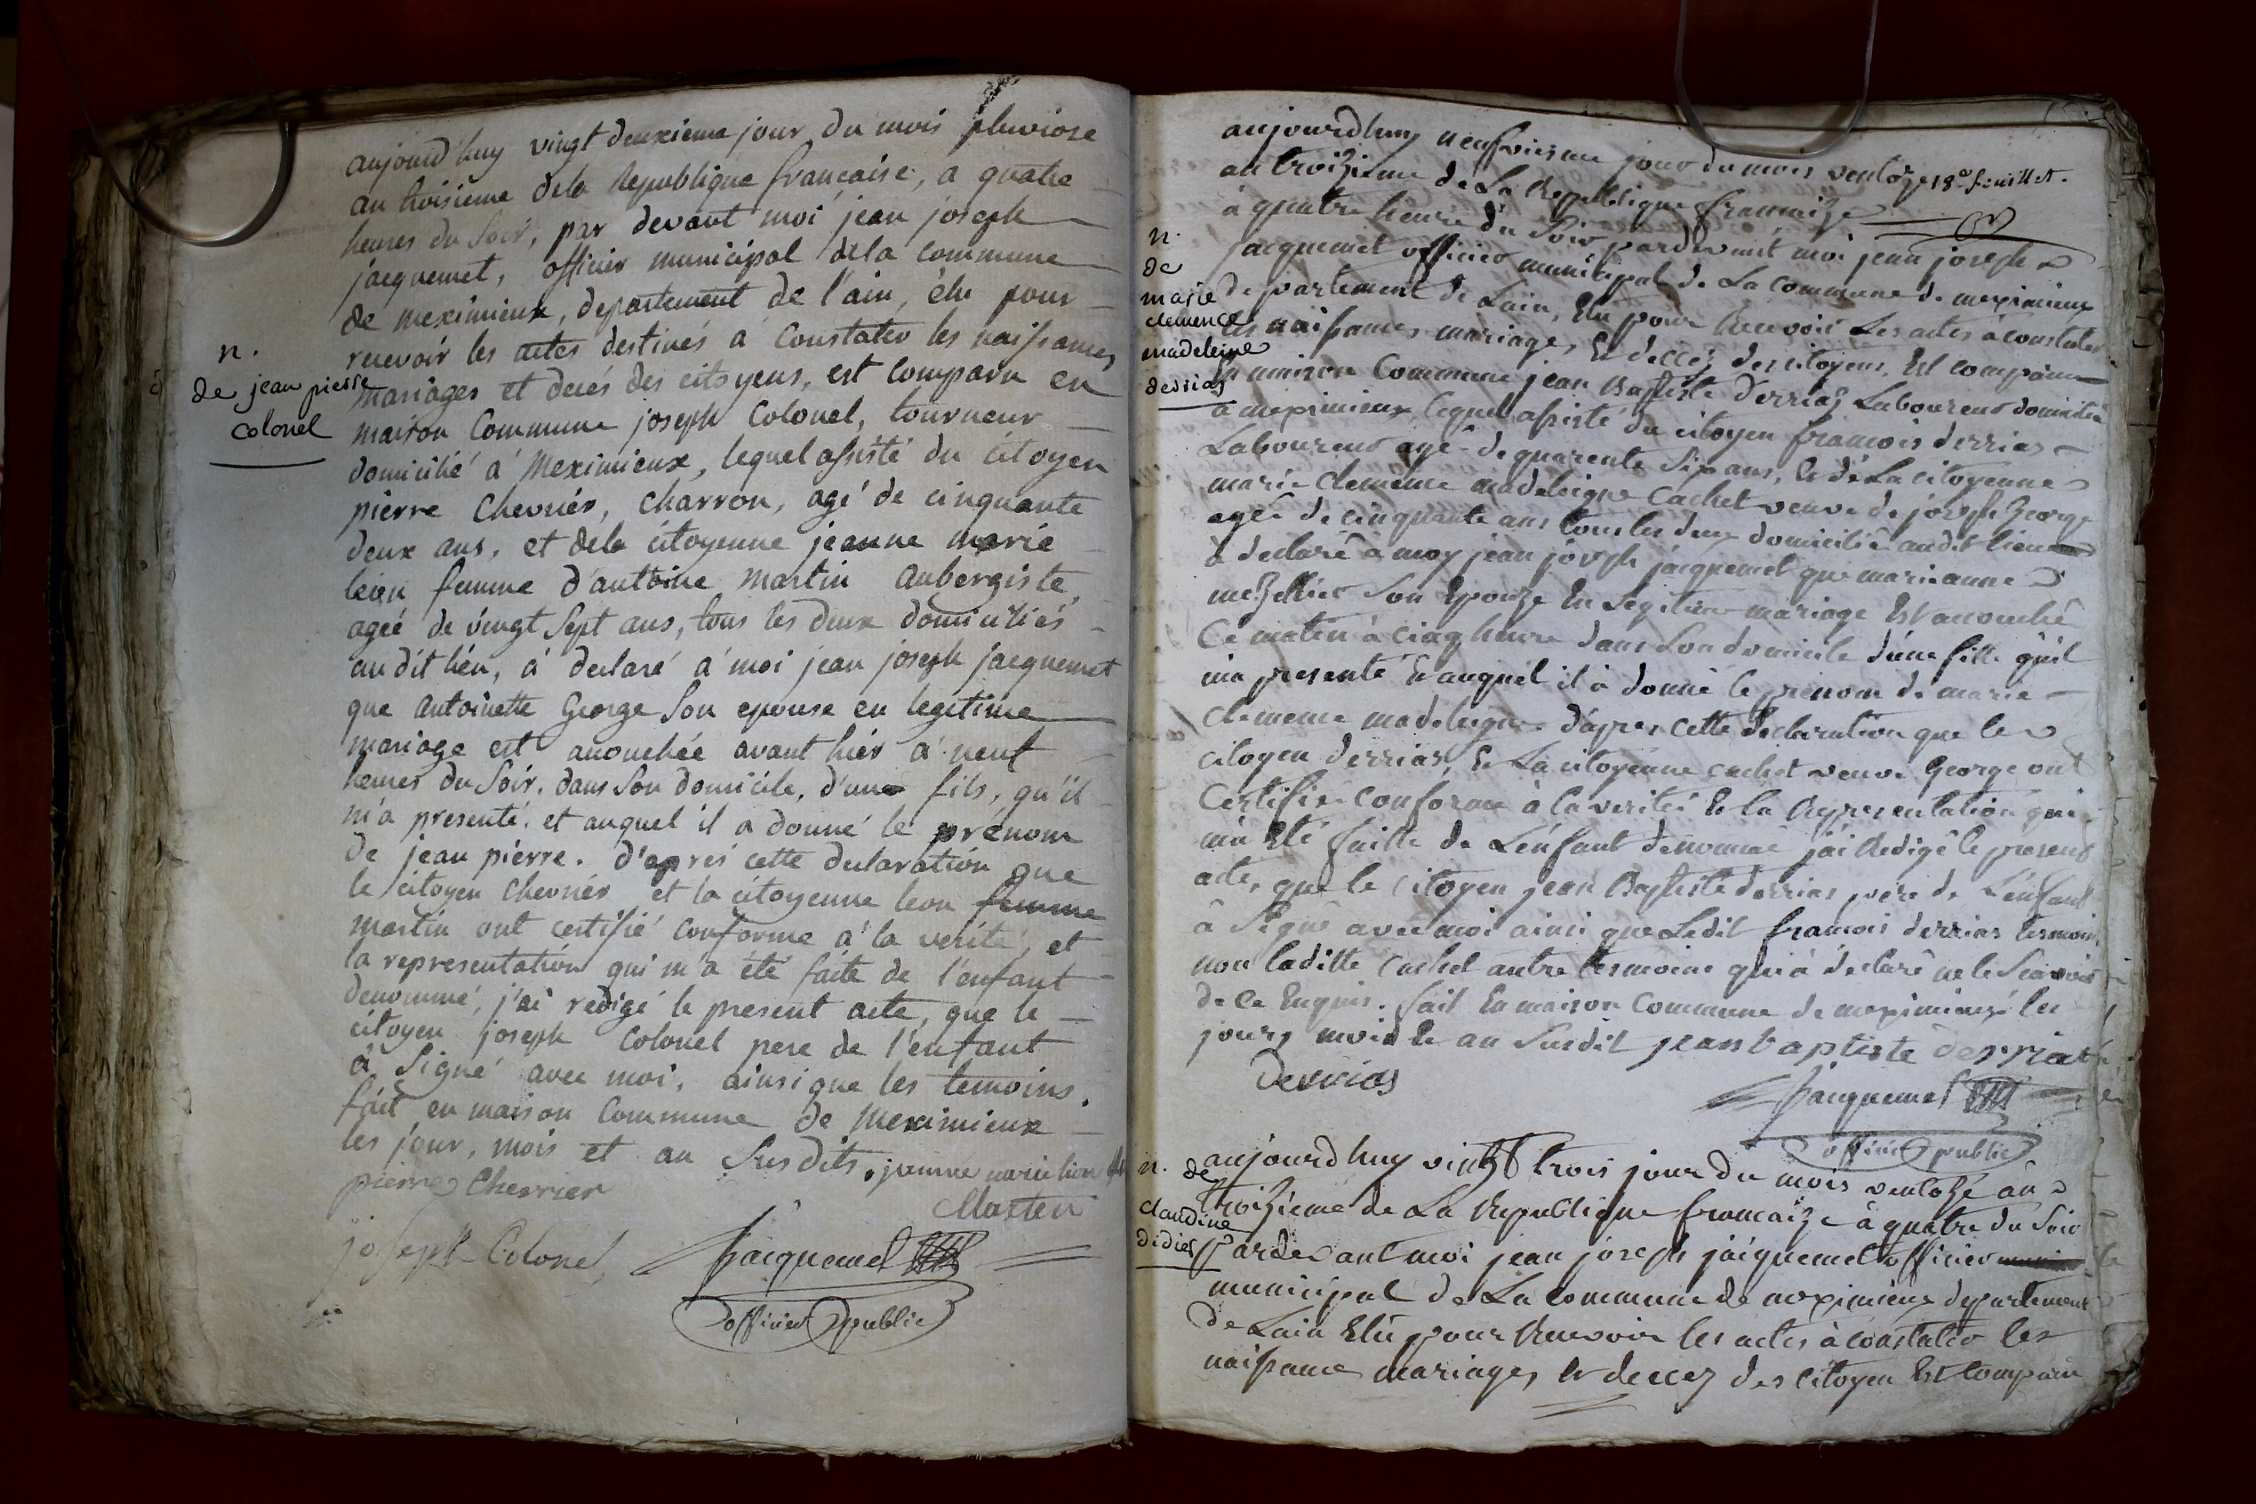 n.
de jean pierre
colonel
aujourd'huy vingt deuxieme jour du mois pluviose
an troisieme de la Republique francaise, a quatre
heures du Soir, par devant moi jean joseph
jacquemet, officier municipal de la commune
de meximieux, departement de l'ain, élu pour
recevoir les actes destinés a constater les naissances
mariages et decés des citoyens, est comparu en
maison Commune joseph Colonel, tourneur
domicilié a Meximieux, lequel assisté du citoyen
pierre Chevrier, Charron, agé de cinquante
deux ans, et de la citoyenne jeanne marie
leon femme d'antoine Martin aubergiste,
ageé de vingt Sept ans, tous les deux domiciliés
au dit lieu, a declaré a moi jean joseph jacquemet
que Antoinette George Son epouse en legitime
mariage est accouchée avant hiér a neuf
heures du Soir, dans Son domicile, d'une fils, qu'il
m'a presenté, et auquel il a donné le prénom
de jean pierre. d'aprés cette declaration que
le citoyen Chevrier et la citoyenne leon femme
Martin ont certifié conforme a la verité, et
la representation qui m'a été faite de l'enfant
denommé, j'ai redigé le present acte, que le
citoyen joseph Colonel pere de l'enfant
a Signé avec moi, ainsi que les temoins.
fait en maison Commune de Meximieux
les jour, mois et an Susdits. jeanne marie lion
pierre Chevrier
Marten
joseph Colonel
Jacquemet
officier public
18e feuillet.
n.
de
marie
clemence
madeleine
derrias
aujourdhuy neufviesme jour du mois ventoze
an troizieme de La Republique francaize
à quatre heure du Soir pardevant moi jean joseph
jacquemet officier municipal de La commune de meximieux
departement de Lain, Elu pour Recevoir Les actes à constater
les naissances mariages, Et decez des citoyens, Est comparu
En maison Commune jean Baptiste Derriaz Laboureur domicilié
a meximieux lequel assisté du citoyen francois derrias
Laboureur agé de quarente Six ans, Et de La citoyenne
marie Clemence madeleigne Cachet veuve de joseph George
agée de cinquante ans tous les deux domicilié audit lieu
à declaré à moy jean joseph jacquemet que marianne
mezellier Son Epouze En legitime mariage Est accouché
Ce matin à cinq heure dans Son domicile d'une fille qu'il
m'a presenté Et auquél il à donné le prenom de marie
clemence madeleigne d'apres cette declaration que le
citoyen derrias Et La citoyenne cachet veuve George ont
Certifié conforme à la verité Et la Representation qui
m'a Eté faitte de L'énfant denommé j'ai Redigé le present
acte, que le citoyen jean Baptiste derrias pere de L'énfant
â Signé avec moi ainsi que Ledit francois derrias tesmoin
non laditte cachet autre tesmoins qui à declaré ne le Scavoir
de ce Enquis. fait En maison Commune de meximieux les
jours mois et an Susdit jean baptiste derrias
Derrias
Jacquemet
officier public
n. de
claudine
didier
aujourdhuy vingt trois jour du mois ventoze àn
troizieme de La Republique francaize à quatre du Soir
Pardevant moi jean joseph jaiquemet officier
municipal de La commune de meximieux departement
de Lain Elû pour Recevoir les actes à constater les
naissance mariages et decez des citoyen Est comparu